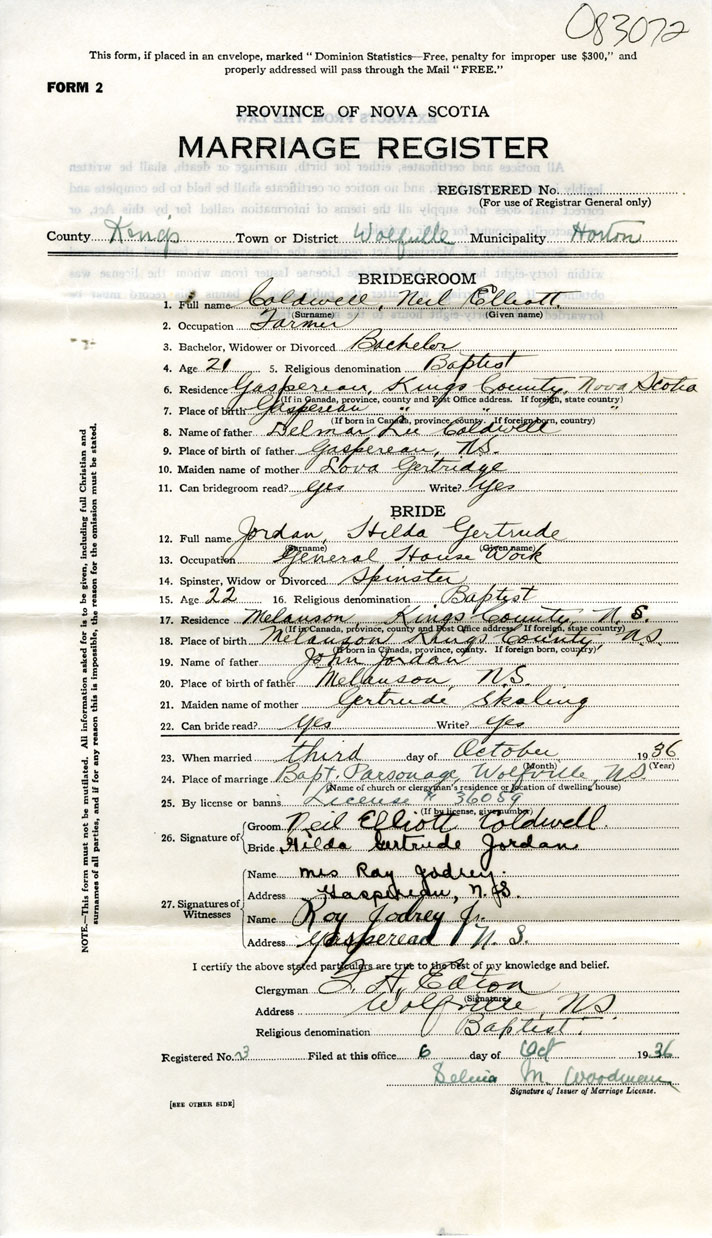 083072
This form, if placed in an envelope, marked "Dominion Statistics—Free, penalty for improper use $300," and
properly addressed will pass through the Mail "FREE."
FORM 2
PROVINCE OF NOVA SCOTIA
MARRIAGE REGISTER
REGISTERED No.
(For use of Registrar General only)
County Kings Town or District Wolfville Municipality Horton
BRIDEGROOM
1. Full name Coldwell, Neil Elliott
(Surname) (Given name)
2. Occupation Farmer
3. Bachelor, Widower or Divorced Bachelor
4. Age 21 5. Religious denomination Baptist
6. Residence Gaspereau, Kings County, Nova Scotia
(If in Canada, province, county and Post Office address. If foreign, state country)
7. Place of birth Gaspereau " " "
(If born in Canada, province, county. If foreign born, country)
8. Name of father Delmar Lee Coldwell
9. Place of birth of father Gaspereau, N.S.
10. Maiden name of mother Lova Gertridge
11. Can bridegroom read? yes Write? yes
BRIDE
12. Full name Jordan, Hilda Gertrude
(Surname) (Given name)
13. Occupation General House Work
14. Spinster, Widow or Divorced Spinster
15. Age 22 16. Religious denomination Baptist
17. Residence Melanson, Kings County, N.S.
(If in Canada, province, county and Post Office address If foreign, state country)
18. Place of birth Melanson Kings County, N.S.
(If born in Canada, province, county. If foreign born, country)
19. Name of father John Jordan
20. Place of birth of father Melanson, N.S.
21. Maiden name of mother Gertrude Skaling
22. Can bride read? yes Write? yes
23. When married third day of October 1936
(Month) (Year)
24. Place of marriage Bapt. Parsonage, Wolfville, NS
(Name of church or clergyman's residence or location of dwelling house)
25. By license or banns License # 36059
(If by license, give number)
26. Signature of Groom Neil Elliott Coldwell
Bride Hilda Gertrude Jordan
27. Signatures of Witnesses
Name Mrs Ray Jodrey.
Address Gaspereau, N.S.
Name Roy Jodrey Jr.
Address Gaspereau N.S.
I certify the above stated particulars are true to the best of my knowledge and belief.
Clergyman
(Signature)
Address Wolfville, NS
Religious denomination Baptist.
Registered No. 3 Filed at this office 6 day of Oct 1936
Selina M. Woodman
Signature of Issuer of Marriage License.
[SEE OTHER SIDE]
NOTE.—This form must not be mutilated. All information asked for is to be given, including full Christian and
surnames of all parties, and if for any reason this is impossible, the reason for the omission must be stated.